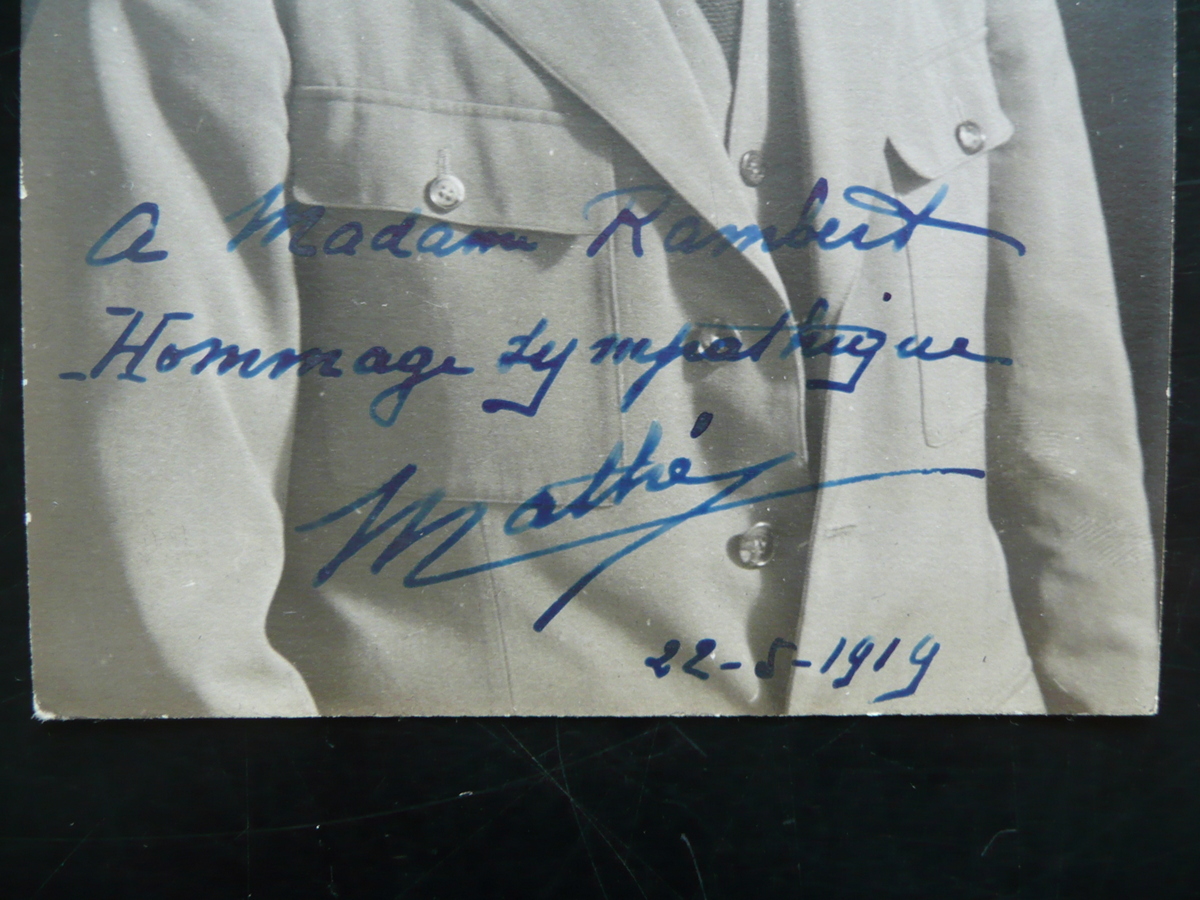 A Madame Rambert
Hommage sympathique
Mathé
22-5-1919